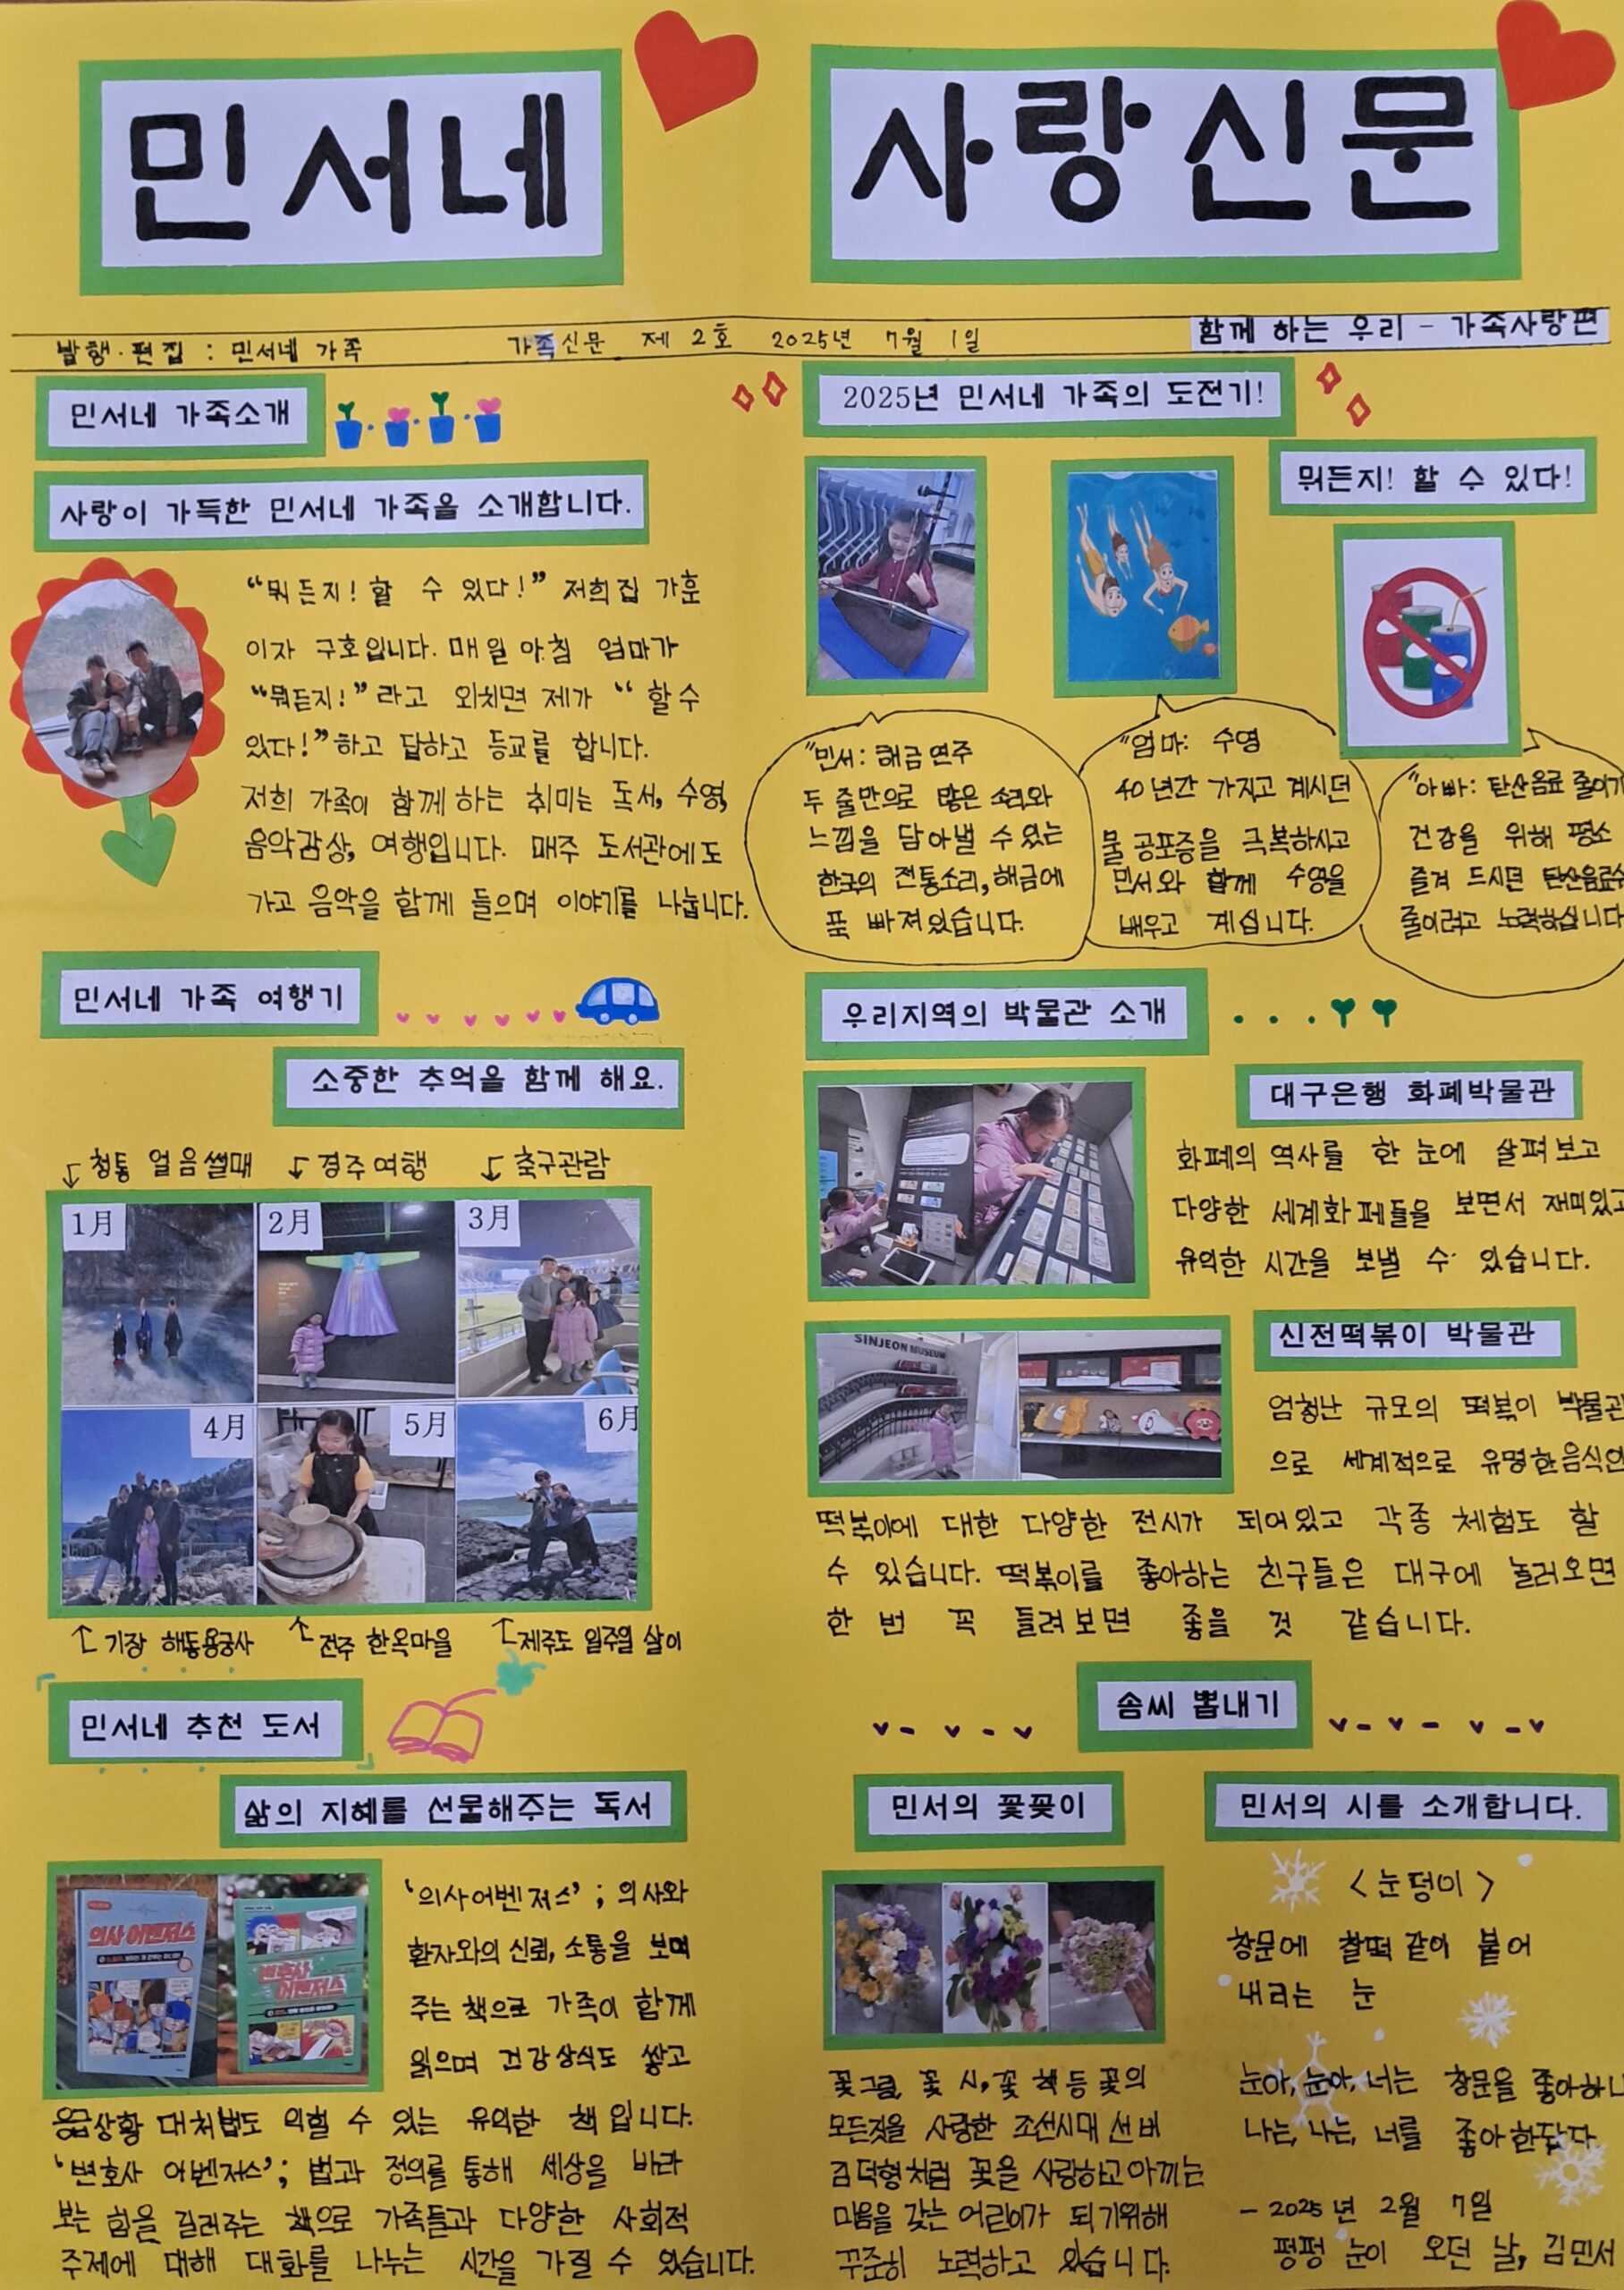 민서네 사랑신문
발행·편집 : 민서네 가족 가족신문 제 2호 2025년 7월 1일 함께 하는 우리 - 가족사랑편
민서네 가족소개
사랑이 가득한 민서네 가족을 소개합니다.
“뭐든지! 할 수 있다!” 저희집 가훈
이자 구호입니다. 매일 아침 엄마가
“뭐든지!”라고 외치면 제가 “할 수
있다!”하고 답하고 등교를 합니다.
저희 가족이 함께 하는 취미는 독서, 수영,
음악감상, 여행입니다. 매주 도서관에도
가고 음악을 함께 들으며 이야기를 나눕니다.
민서네 가족 여행기
소중한 추억을 함께 해요.
청통 얼음썰매 경주여행 축구관람
1月 2月 3月
4月 5月 6月
기장 해동용궁사 전주 한옥마을 제주도 일주일 살이
민서네 추천 도서
삶의 지혜를 선물해주는 독서
의사 어벤저스
변호사 어벤저스
‘의사어벤저스’; 의사와
환자와의 신뢰, 소통을 보여
주는 책으로 가족이 함께
읽으며 건강상식도 쌓고
응급상황 대처법도 익힐 수 있는 유익한 책입니다.
‘변호사 어벤저스’; 법과 정의를 통해 세상을 바라
보는 힘을 길러주는 책으로 가족들과 다양한 사회적
주제에 대해 대화를 나누는 시간을 가질 수 있습니다.
2025년 민서네 가족의 도전기!
뭐든지! 할 수 있다!
“민서: 해금연주
두 줄만으로 많은 소리와
느낌을 담아낼 수 있는
한국의 전통소리, 해금에
푹 빠져있습니다.
“엄마: 수영
40년간 가지고 계시던
물 공포증을 극복하시고
민서와 함께 수영을
배우고 계십니다.
“아빠: 탄산음료 줄이기
건강을 위해 평소
즐겨 드시던 탄산음료
줄이려고 노력하십니다
우리지역의 박물관 소개
대구은행 화폐박물관
화폐의 역사를 한 눈에 살펴보고
다양한 세계화폐들을 보면서 재미있고
유익한 시간을 보낼 수 있습니다.
SINJEON MUSEUM
신전떡볶이 박물관
엄청난 규모의 떡볶이 박물관
으로 세계적으로 유명한음식인
떡볶이에 대한 다양한 전시가 되어있고 각종 체험도 할
수 있습니다. 떡볶이를 좋아하는 친구들은 대구에 놀러오면
한 번 꼭 들려보면 좋을 것 같습니다.
솜씨 뽐내기
민서의 꽃꽂이
꽃그림, 꽃 시, 꽃 책 등 꽃의
모든것을 사랑한 조선시대 선비
김덕형처럼 꽃을 사랑하고 아끼는
마음을 갖는 어린이가 되기위해
꾸준히 노력하고 있습니다.
민서의 시를 소개합니다.
<눈덩이>
창문에 찰떡 같이 붙어
내리는 눈
눈아, 눈아, 너는 창문을 좋아하니
나는, 나는, 너를 좋아한단다
- 2025년 2월 7일
펑펑 눈이 오던 날, 김민서